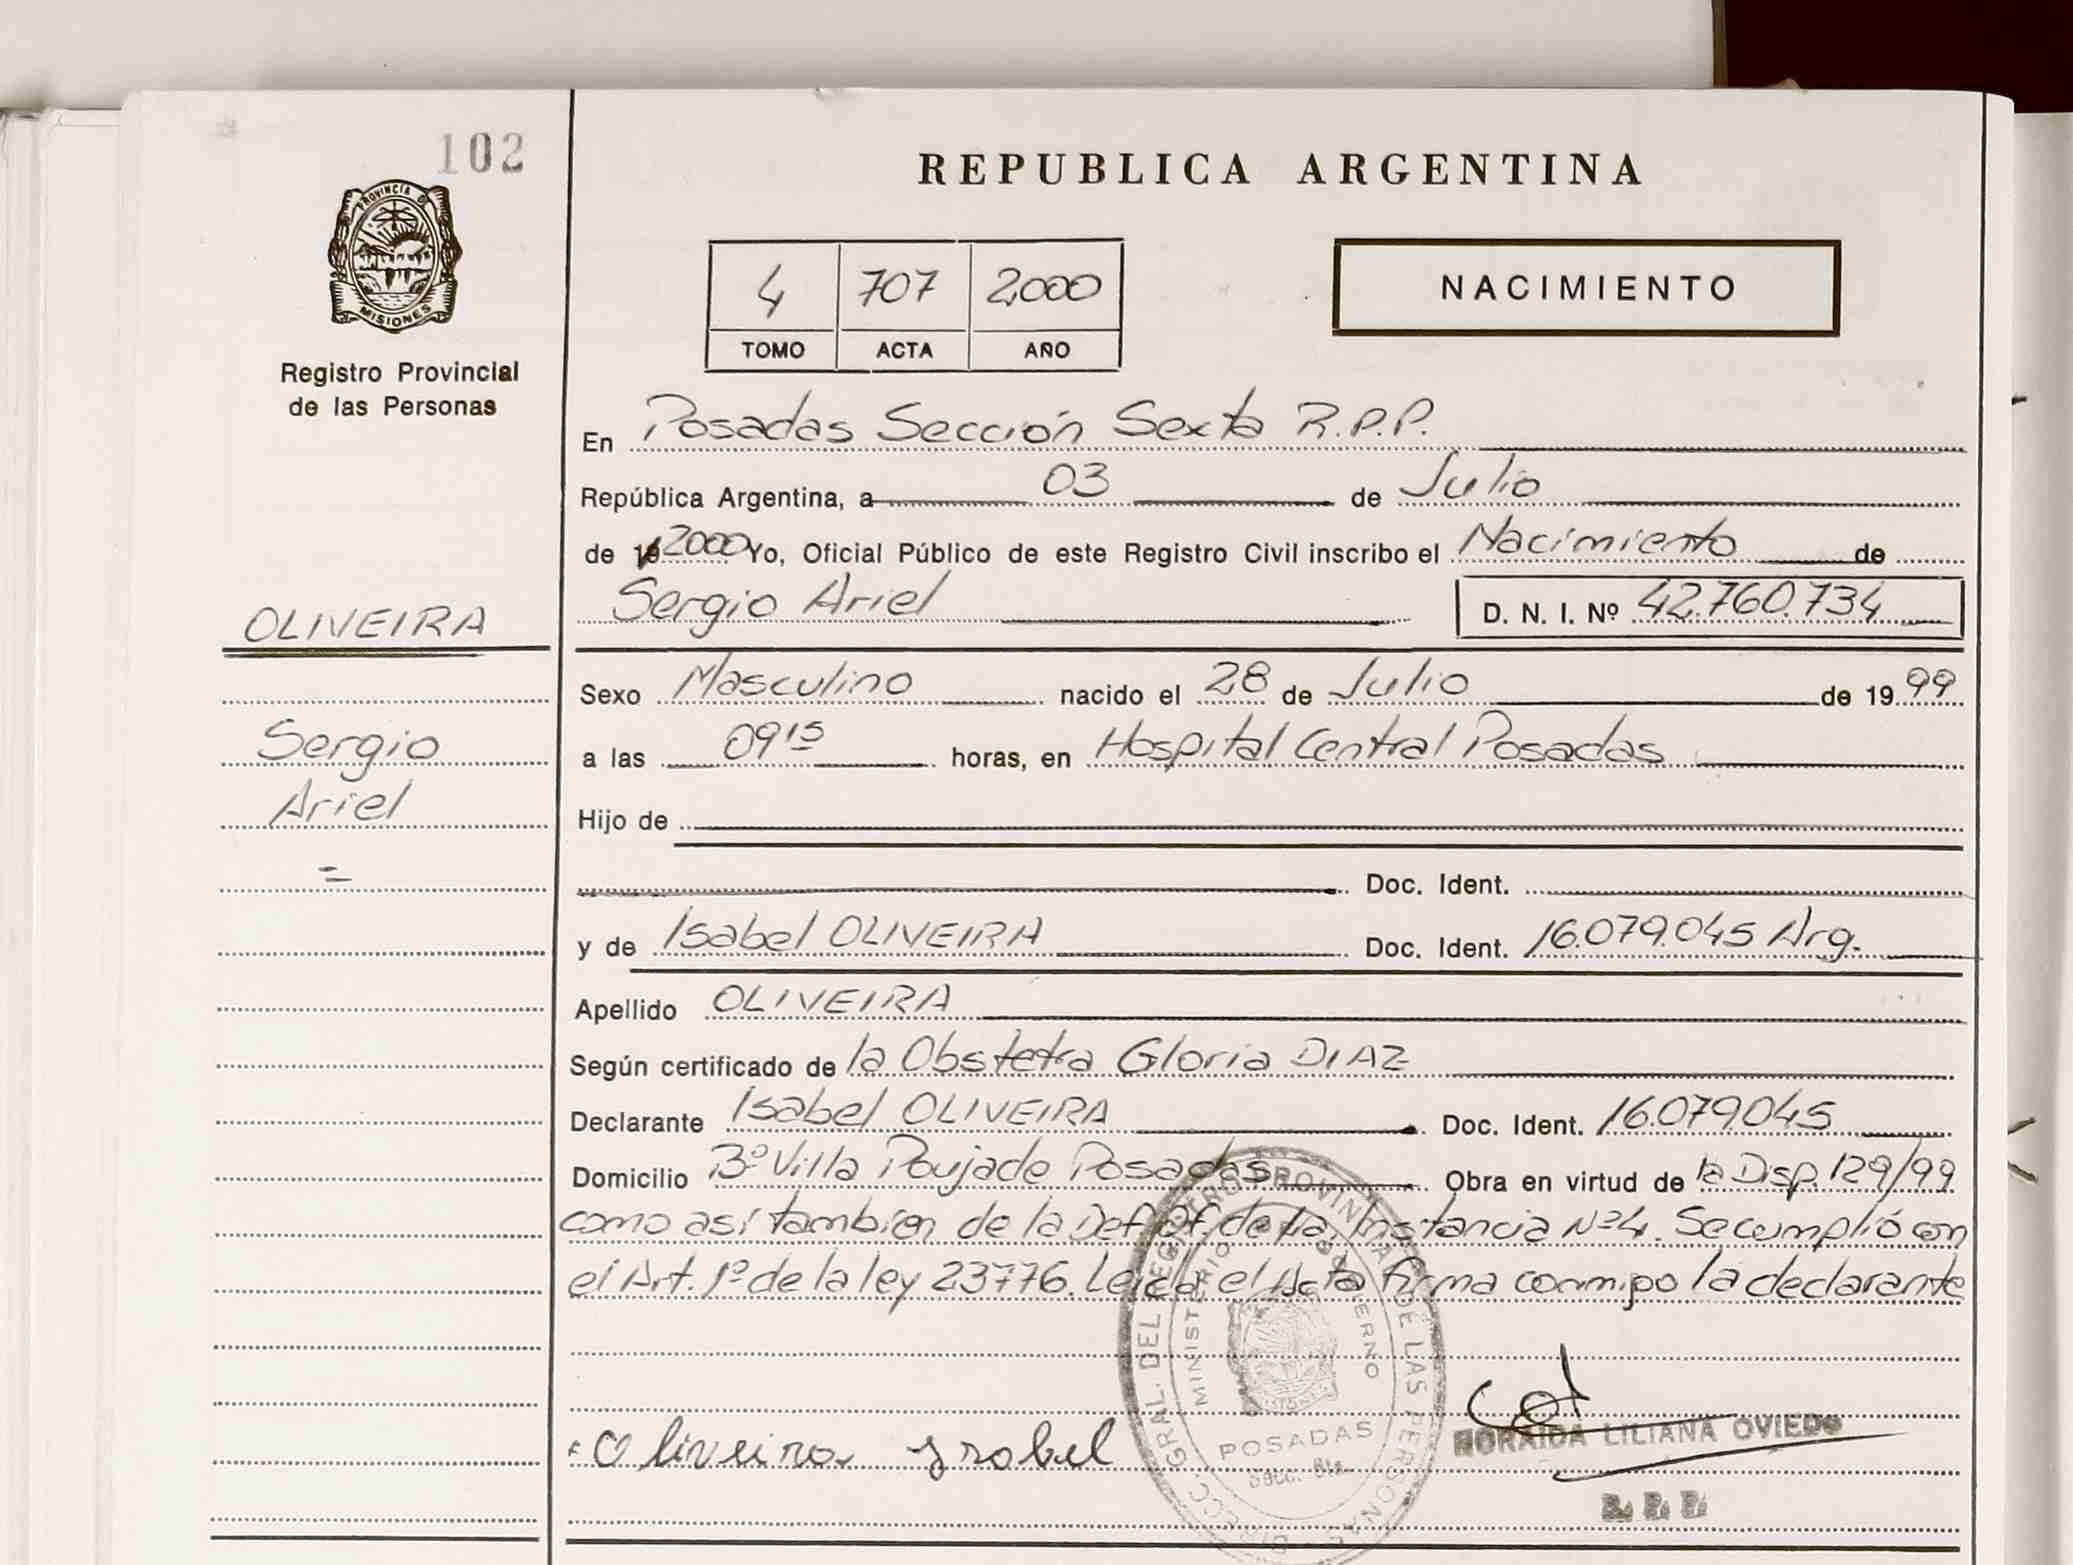 102
PROVINCIA DE
MISIONES
Registro Provincial
de las Personas
OLIVEIRA
Sergio
Ariel
REPUBLICA ARGENTINA
4 707 2000
TOMO ACTA AÑO
NACIMIENTO
En Posadas Sección Sexta R.P.P.
República Argentina, a 03 de Julio
de 19 2000 Yo, Oficial Público de este Registro Civil inscribo el Nacimiento de
Sergio Ariel D. N. I. Nº 42.760.734
Sexo Masculino nacido el 28 de Julio de 1999
a las 09 15 horas, en Hospital Central Posadas
Hijo de
Doc. Ident.
y de Isabel OLIVEIRA Doc. Ident. 16.079.045 Arg.
Apellido OLIVEIRA
Según certificado de la Obstetra Gloria DIAZ
Declarante Isabel OLIVEIRA Doc. Ident. 16.079045
Domicilio Bº Villa Poujade Posadas Obra en virtud de la Disp. 129/99
como así tambien de la Def. Of. de Instancia Nº 4. Se cumplió con
el Art. 1º de la ley 23776. Leída el Acta firma conmigo la declarante
Oliveira Isabel
NORAIDA LILIANA OVIEDO
DIRECC. GRAL. DEL REGISTRO PROVINCIAL DE LAS PERSONAS
MINISTERIO DE GOBIERNO
POSADAS